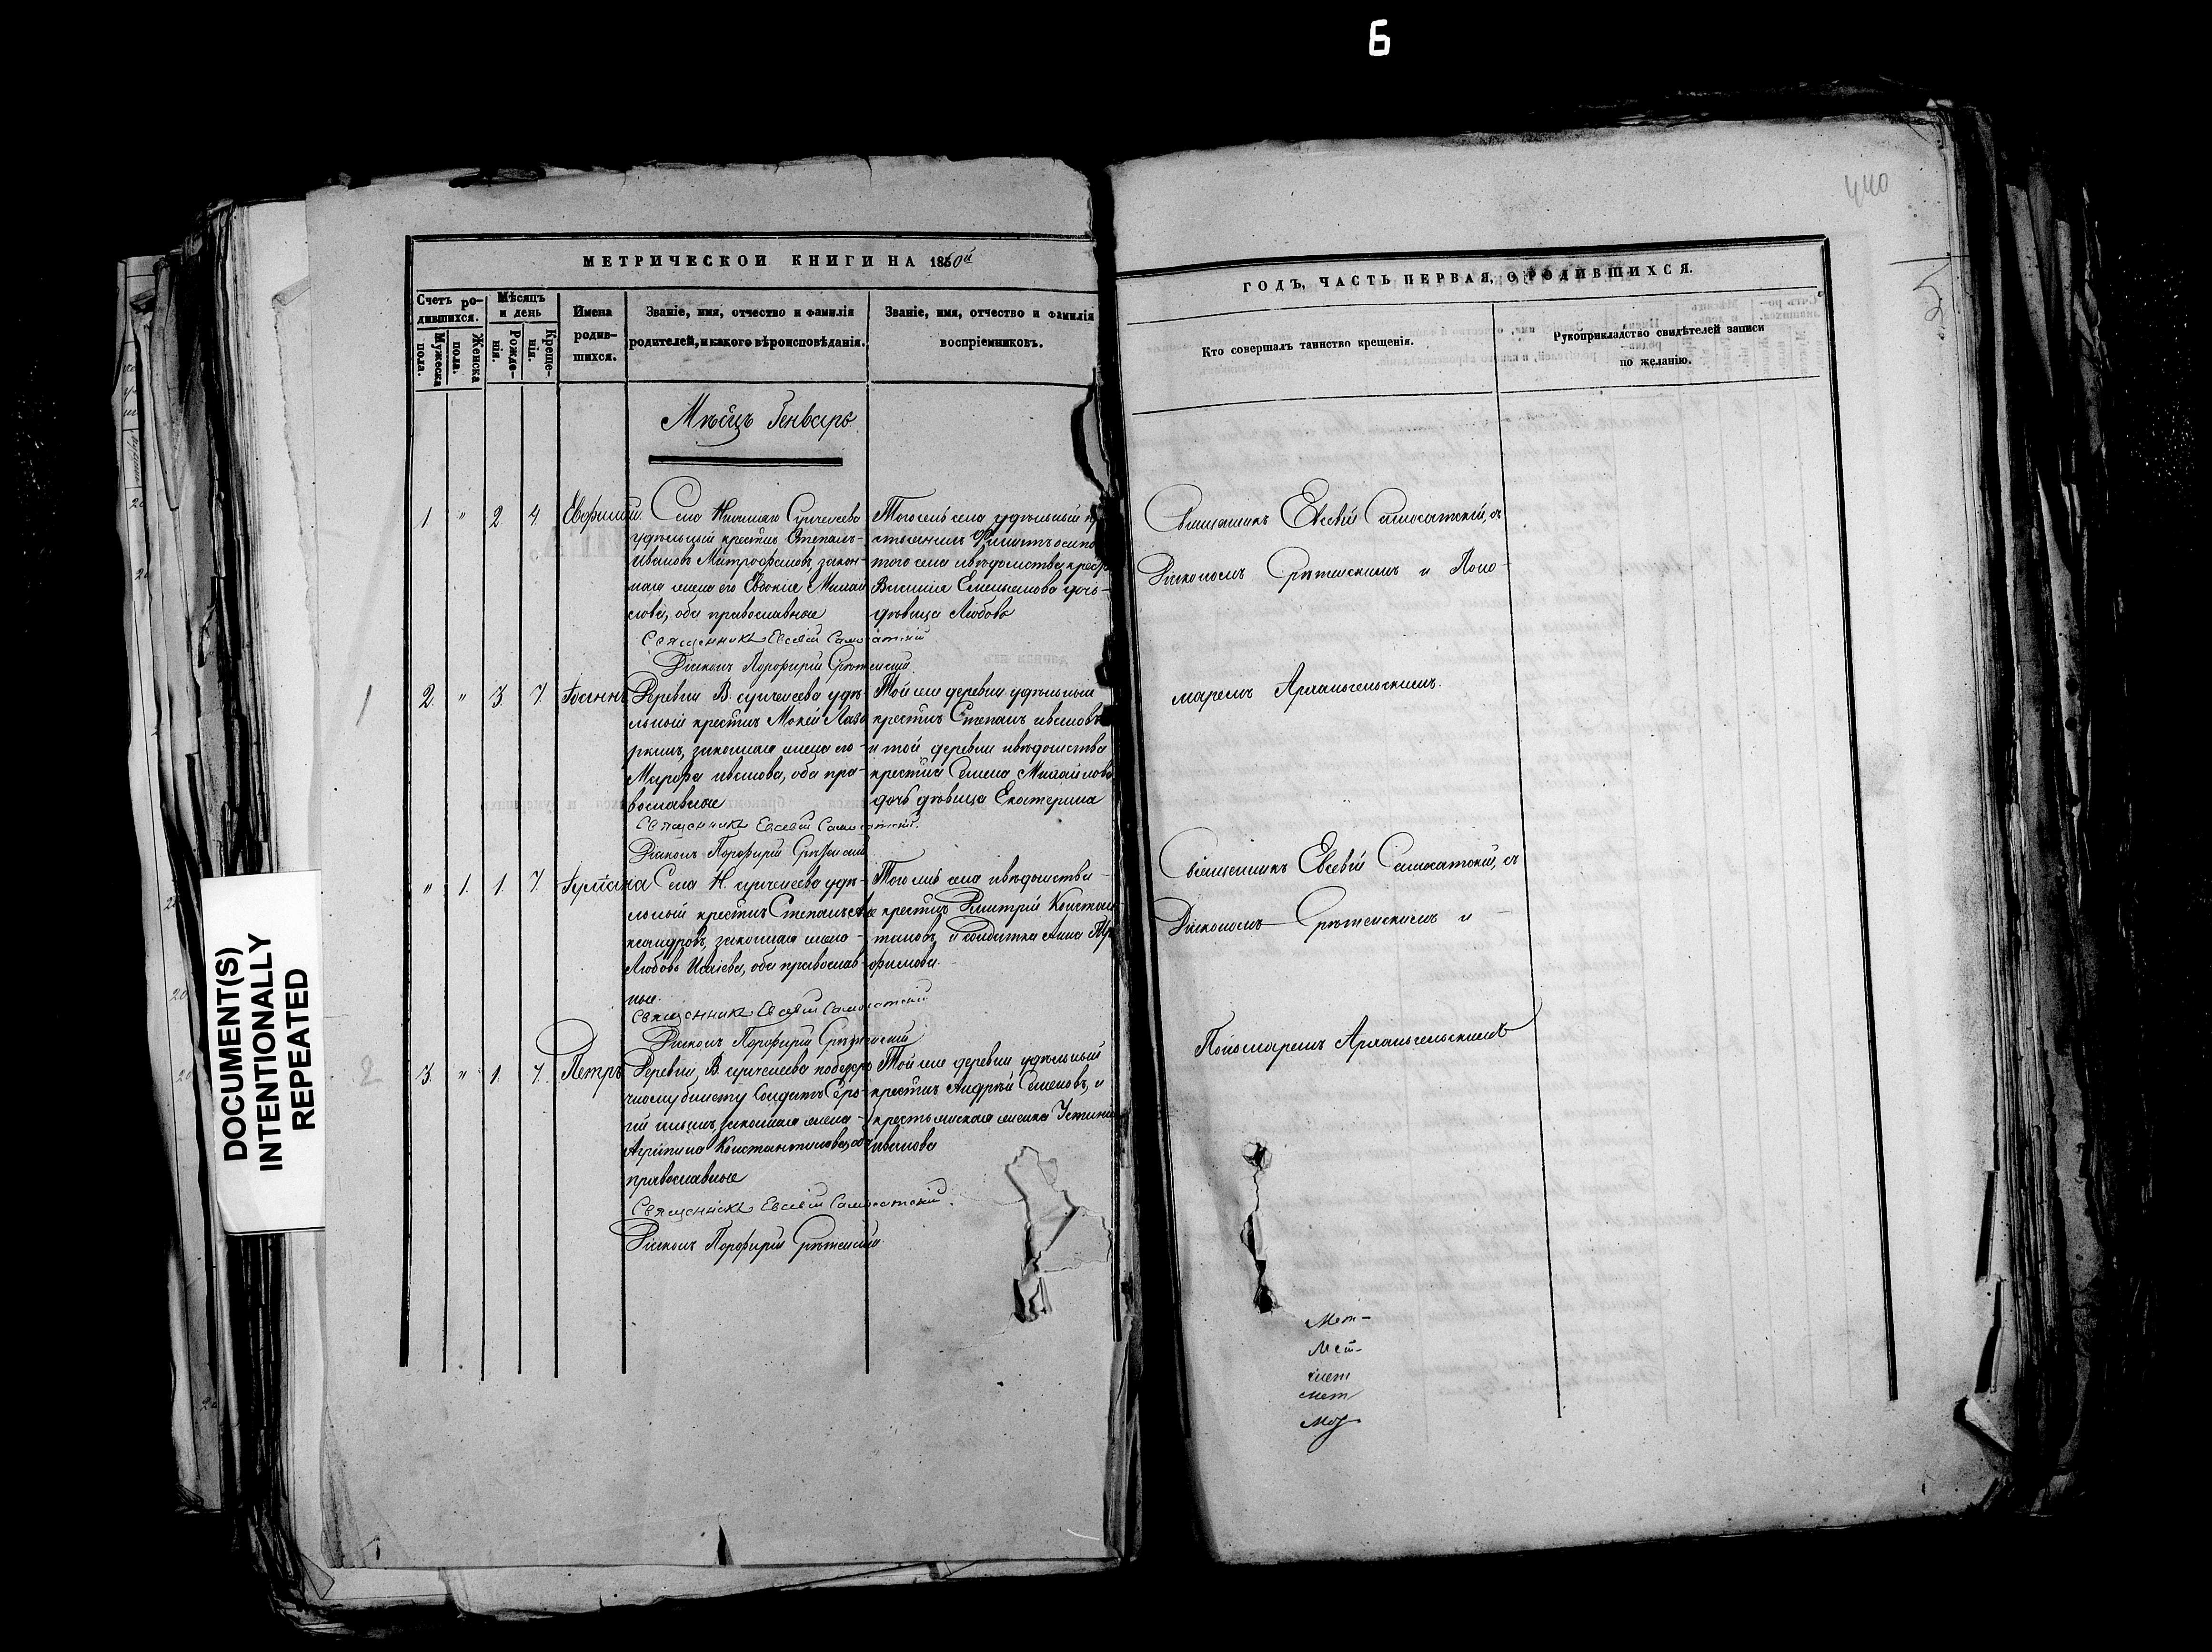 6
440
МЕТРИЧЕСКОЙ КНИГИ НА 1860й
ГОДЪ, ЧАСТЬ ПЕРВАЯ, О РОДИВШИХСЯ.
Счетъ ро-
дившихся.
Мужеска
пола.
Женска
пола.
Мѣсяцъ
и день
Рожде-
нія.
Креще-
нія.
Имена
родив-
шихся.
Званіе, имя, отчество и фамилія
родителей, и какого вѣроисповѣданія.
Званіе, имя, отчество и фамилія
воспріемниковъ.
Кто совершалъ таинство крещенія.
Рукоприкладство свидѣтелей записи
по желанію.
Мѣсяцъ Генварь
1 " 2. 4. Евфимій.
Села
удѣльный крестин Степанъ
Ивановъ Митрофановъ, закон-
ная жена его Евдокія Михаи
лова, оба православные
Священникъ Евсевій Самосатскій
Діаконъ Порфирій Срѣтенскій
Того жъ села удѣльный
того села вѣдомства
Василія Емельянова дочь
дѣвица Любовь
Священникъ Евсевій Самосатскій, съ
Діакономъ Срѣтенскимъ и Поно-
маремъ Архангельскимъ.
1
2. " 3. 7. Іоаннъ
Деревни В. удѣ-
льный крестин Мокей Лаза
ркинъ, законная жена его
Марфа иванова, оба пра-
вославные
Священникъ Евсевій Самосатскій.
Діаконъ Порфирій Срѣтенскій
Той же деревни удѣльный
крестин Степанъ ивановъ
и той деревни вѣдомства
крестин Семена Михайлова
дочь дѣвица Екатерина
" 1. 1. 7. Іуліана
Села Н. удѣ-
льный крестин Степанъ Але
ксандровъ, законная жена
Любовь Исаіева, оба православ
ные.
Священникъ Евсевій Самосатскій
Діаконъ Порфирій Срѣтенскій
Того жъ села вѣдомства
крестин Дмитрій Констан
тиновъ, и солдатка Анна Тро
фимова.
Священникъ Евсевій Самосатскій, съ
Діакономъ Срѣтенскимъ и
Пономаремъ Архангельскимъ
2
3. " 1. 7. Петръ
Деревни В. побезсро
чному билету Солдатъ Сер
гій ильинъ, законная жена
Агрипина Константинова, оба
православные
Священникъ Евсевій Самосатскій.
Діаконъ Порфирій Срѣтенскій
Той же деревни удѣльный
крестин Андрей Семеновъ, и
крестьянская женка Устинія
иванова
DOCUMENT(S)
INTENTIONALLY
REPEATED
Мет-
Мет-
мет